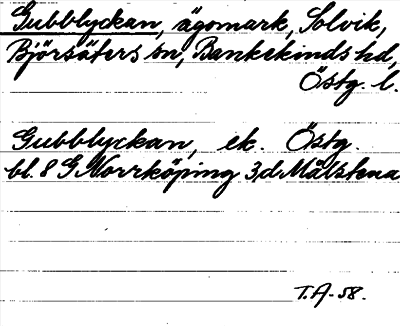 Gubblyckan, ägomark, Solvik,
Björsäters sn, Bankekinds hd,
Östg. l.
Gubblyckan, ek. Östg.
bl. 8 G Norrköping 3,d Målstena
T.A-58.